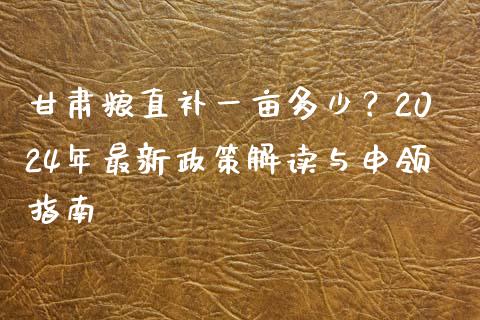 甘肃粮直补一亩多少？20
24年最新政策解读与申领
指南